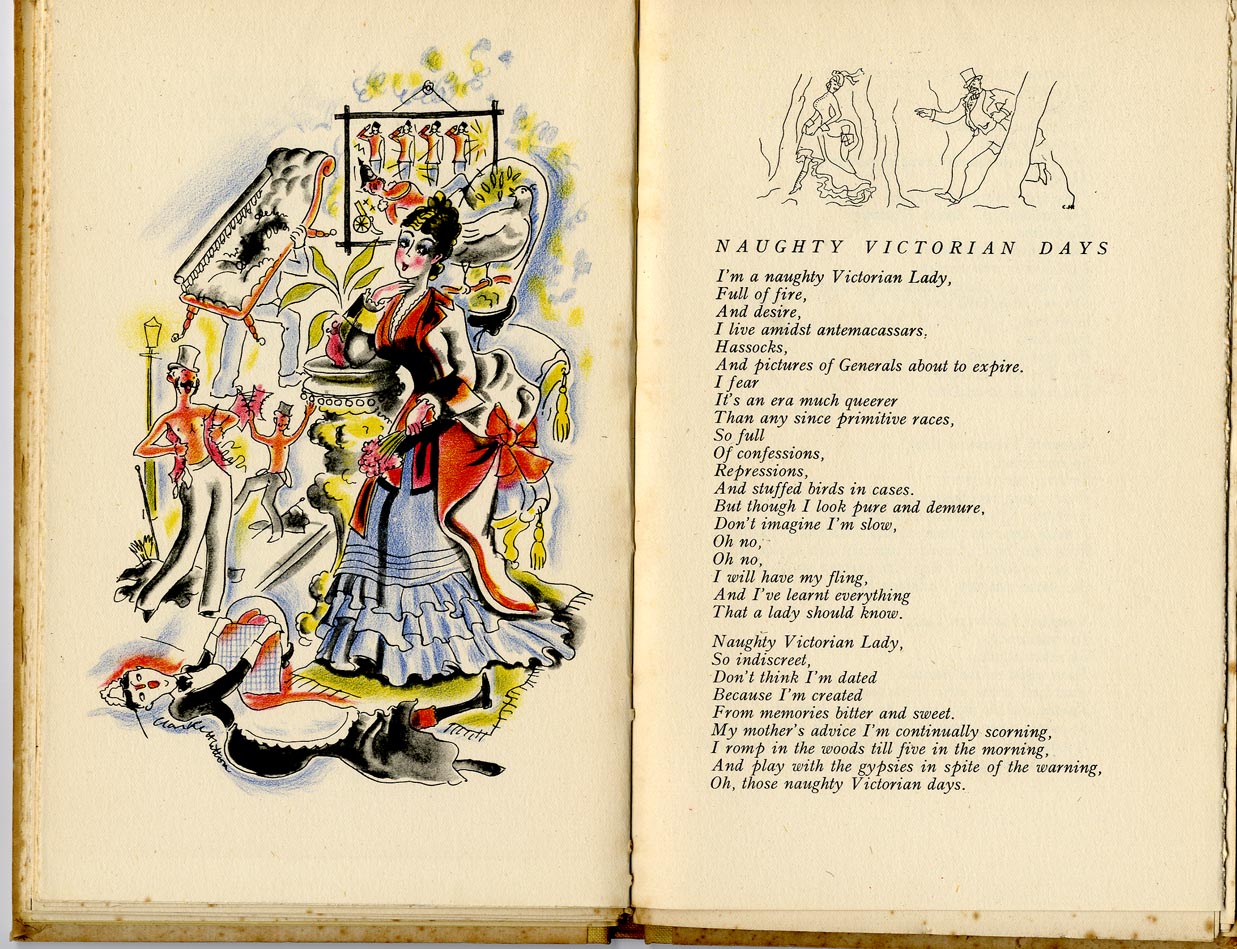 Clarke Hutton
C.H
NAUGHTY VICTORIAN DAYS
I'm a naughty Victorian Lady,
Full of fire,
And desire,
I live amidst antemacassars,
Hassocks,
And pictures of Generals about to expire.
I fear
It's an era much queerer
Than any since primitive races,
So full
Of confessions,
Repressions,
And stuffed birds in cases.
But though I look pure and demure,
Don't imagine I'm slow,
Oh no,
Oh no,
I will have my fling,
And I've learnt everything
That a lady should know.
Naughty Victorian Lady,
So indiscreet,
Don't think I'm dated
Because I'm created
From memories bitter and sweet.
My mother's advice I'm continually scorning,
I romp in the woods till five in the morning,
And play with the gypsies in spite of the warning,
Oh, those naughty Victorian days.